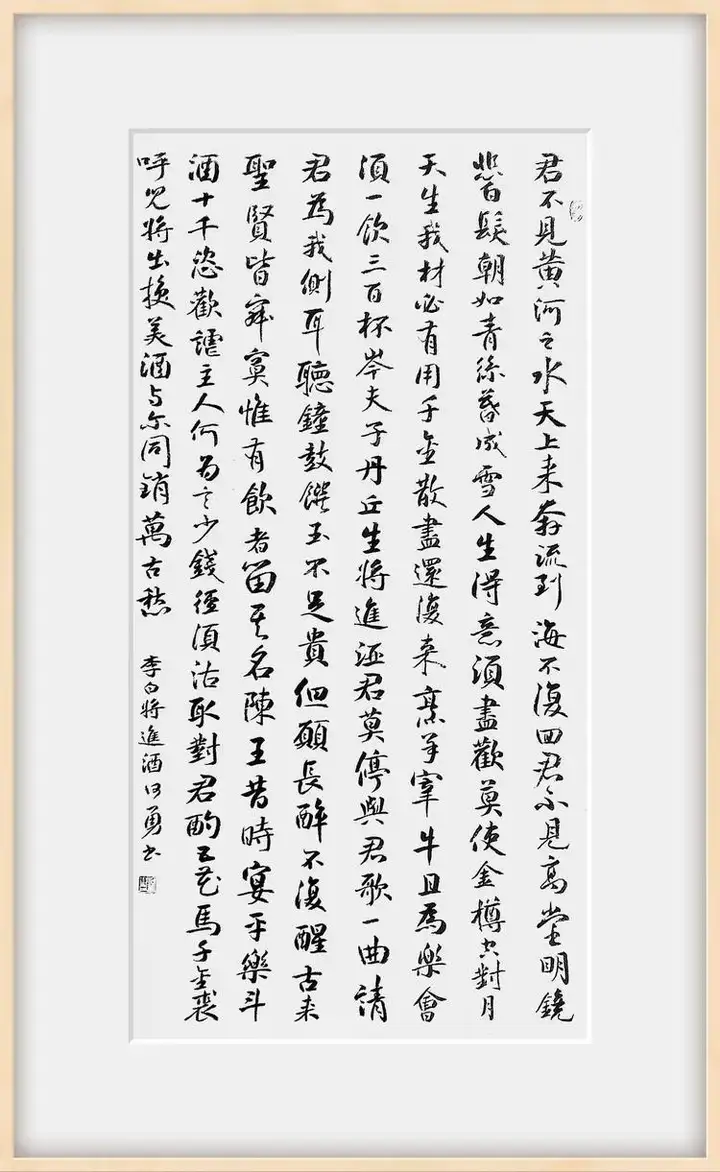 君不見黄河之水天上来奔流到海不復回君不見高堂明鏡
悲白髮朝如青絲暮成雪人生得意須盡歡莫使金樽空對月
天生我材必有用千金散盡還復来烹羊宰牛且為樂會
須一飲三百杯岑夫子丹丘生將進酒君莫停與君歌一曲請
君為我側耳聽鐘鼓饌玉不足貴但願長醉不復醒古来
聖賢皆寂寞惟有飲者留其名陳王昔時宴平樂斗
酒十千恣歡謔主人何為言少錢徑須沽取對君酌五花馬千金裘
呼兒將出換美酒与尔同銷萬古愁
李白將進酒勇书